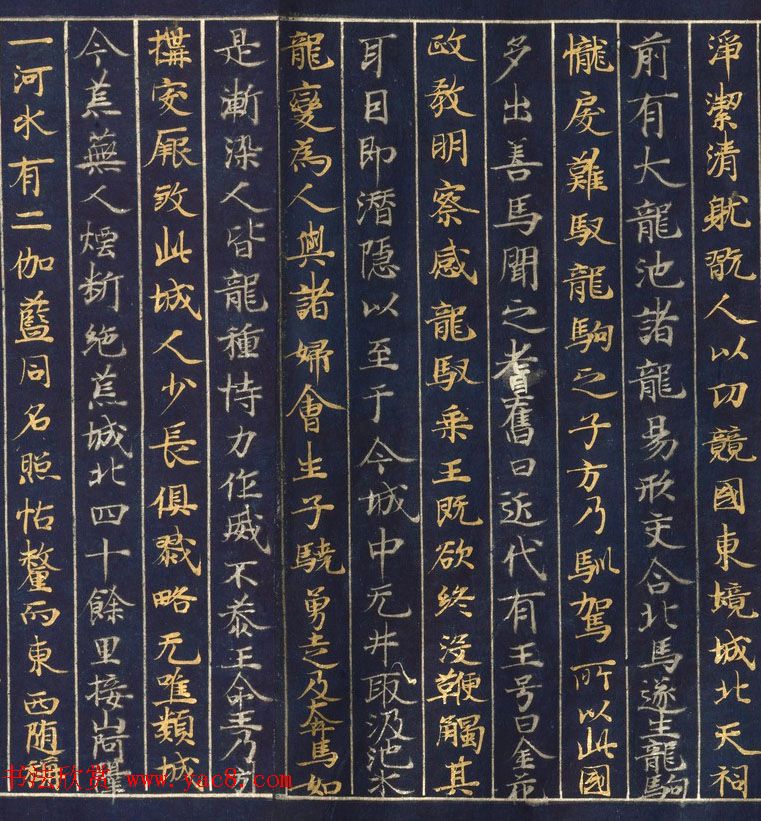 淨潔清躭翫人以㓛競國東境城北天祠
前有大龍池諸龍易形交合牝馬遂生龍駒
㦨戾難馭龍駒之子方乃馴駕所以此國
多出善馬聞之耆舊曰近代有王号曰金花
政教明察感龍馭乘王既欲終没鞭觸其
耳目即潛隱以至于今城中无井取汲池水
龍變為人與諸婦會生子驍勇走及奔馬如
是漸染人皆龍種恃力作威不恭王命王乃引
搆突厥敓此城人少長俱戮略无唯類城
今荒蕪人煙斷絶荒城北四十餘里接山阿隔
一河水有二伽藍同名照怙釐而東西随稱
书法欣赏 www.yac8.com